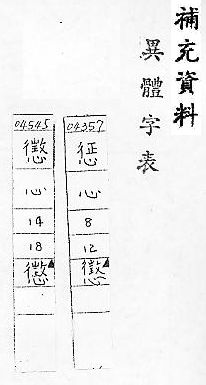 補充資料
異體字表
04357
惩
心
8
12
懲
04545
心
14
18
懲